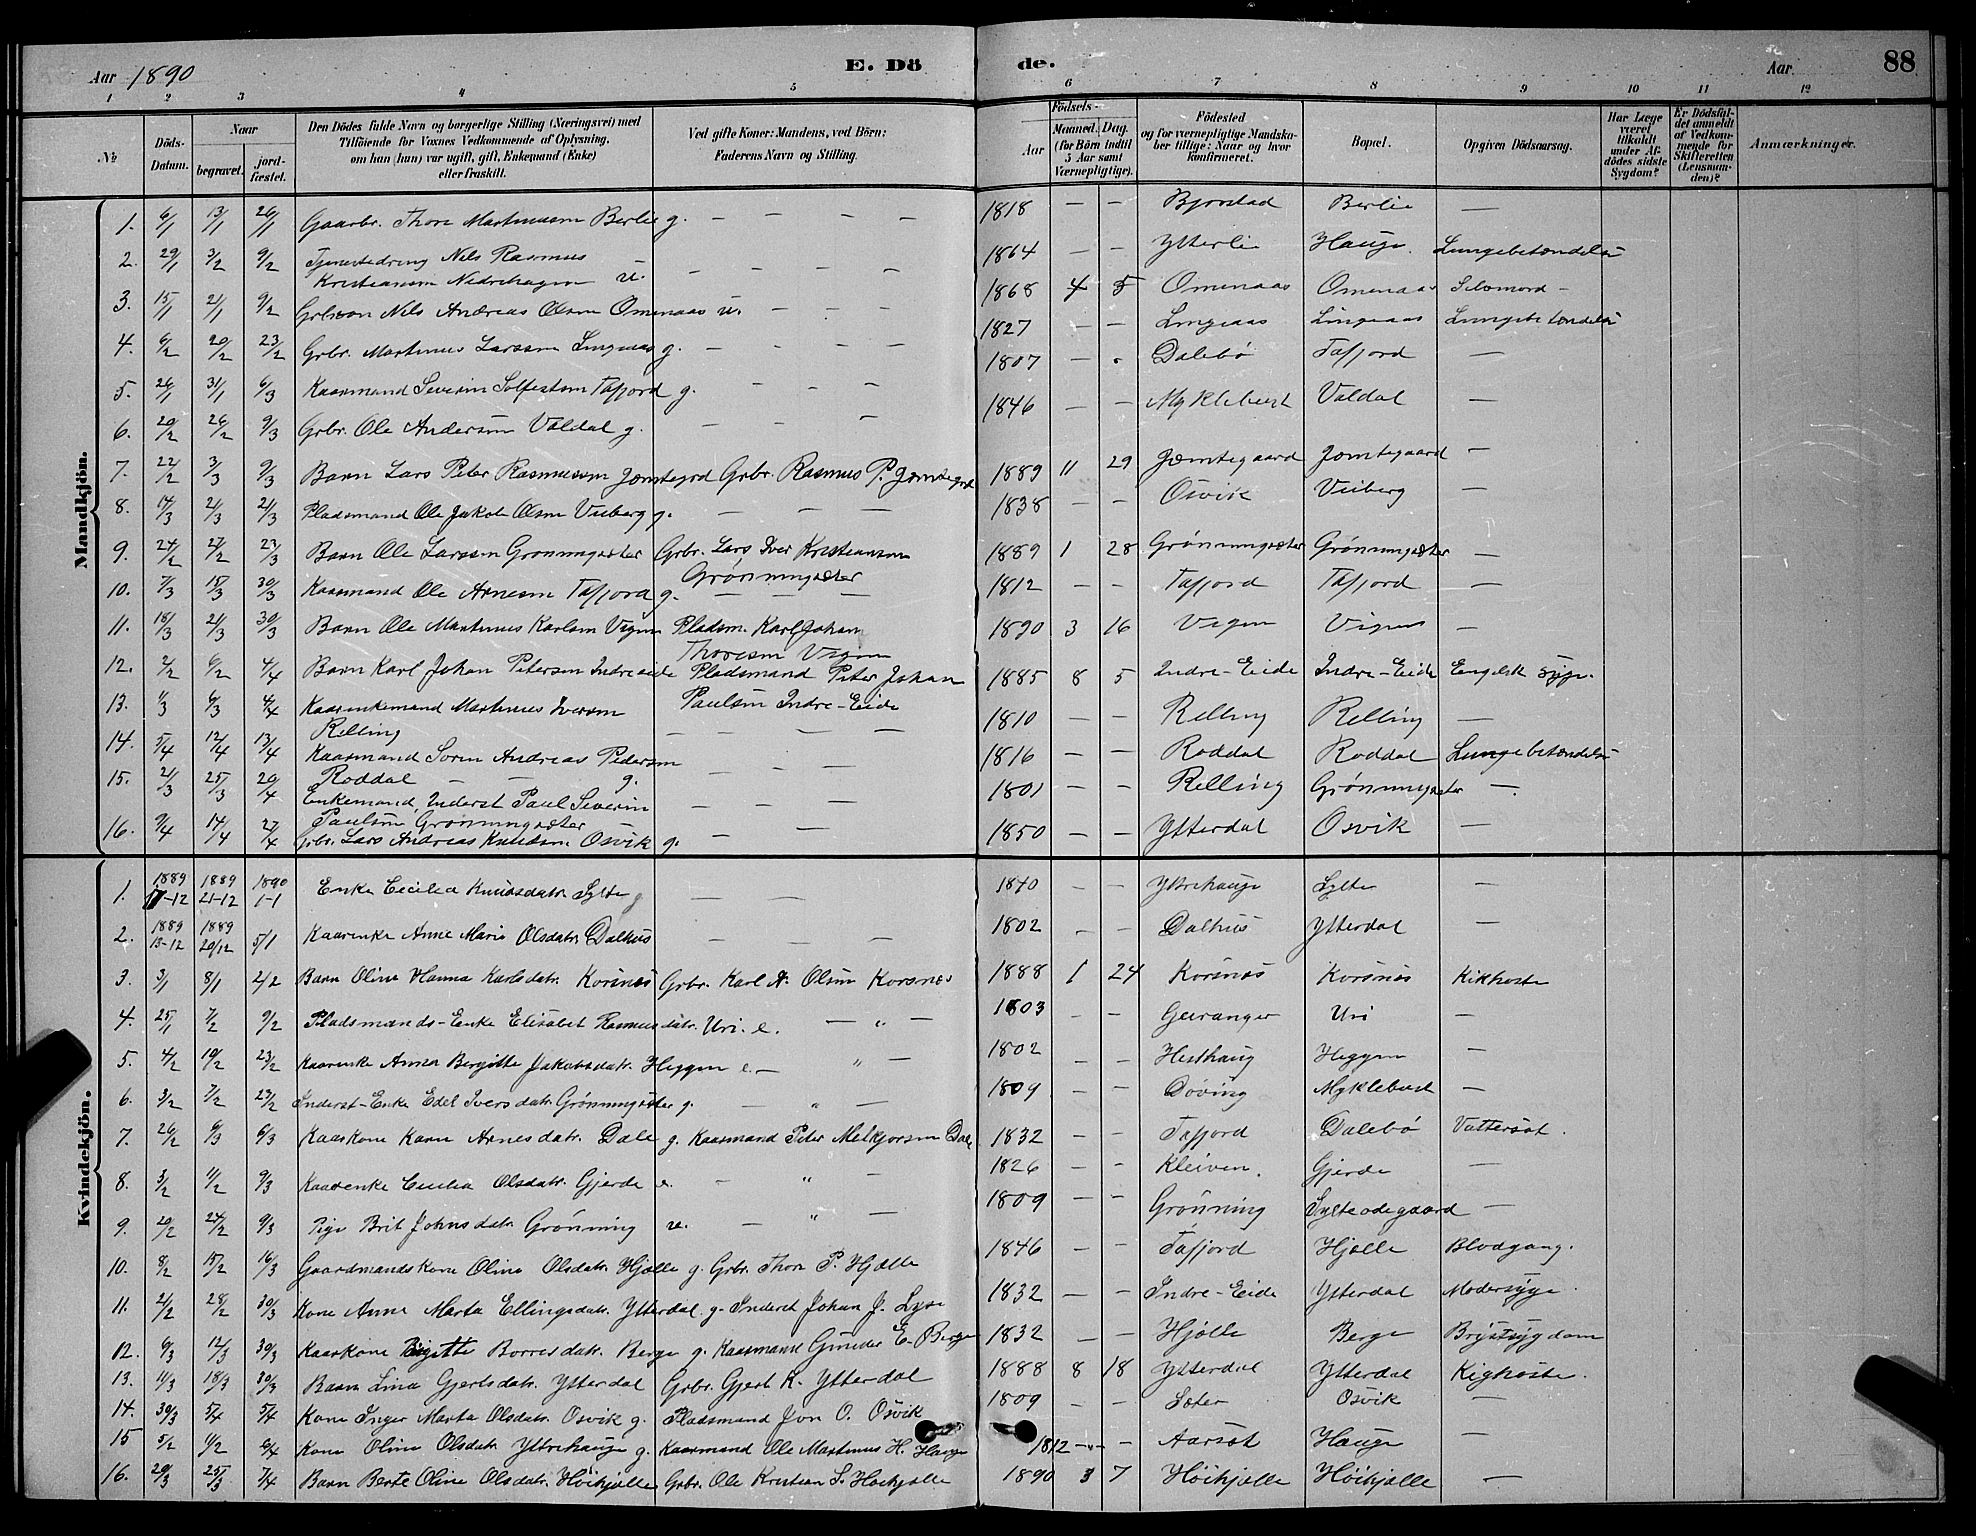 Aar 1890 E. Dö de. Aar 88
1 2 3 4 5 6 7 8 9 10 11 12
№ Döds-Datum. Naar begravet. jordfæstet. Den Dödes fulde Navn og borgerlige Stilling (Næringsvei) med Tilföiende for Voxnes Vedkommende af Oplysning, om han (hun) var ugift, gift, Enkemand (Enke) eller fraskilt. Ved gifte Koner: Mandens, ved Börn: Faderens Navn og Stilling. Födsels- Aar Maaned. Dag. (for Börn indtil 5 Aar samt Værnepligtige). Födested og for værnepligtige Mandskaber tillige: Naar og hvor konfirmeret. Bopæl. Opgiven Dödsaarsag. Har Læge været tilkaldt under Afdödes sidste Sygdom? Er Dödsfaldet anmeldt af Vedkommende for Skifteretten (Lensmanden)? Anmærkninger.
Mandkjön.
1. 6/1 13/1 26/1 Gaarbr. Thore Martinussen Berlie g. — — — — 1818 — — Bjorstad Berlie —
2. 29/1 3/2 9/2 Tjenestedreng Nils Rasmus Kristiansen Nedrehagen u. — — — — 1864 — — Ytterlie Hauge. Lungebetændelse
3. 15/1 21/1 9/2 Grbrson Nils Andreas Olsen Omenaas u. — — — 1868 4 5 Omenaas Omenaas Selvmord —
4. 6/2 20/2 23/2 Grbr. Martinus Larssen Lingeaas g. — — — — 1827 — — Lingeaas Lingeaas Lungebetændelse
5. 26/1 31/1 6/3 Kaarmand Severin Solfestsen Tafjord g. — — — 1807 — . Dalebö Tafjord —
6. 20/2 26/2 9/3 Grbr. Ole Andersen Valdal g. — — — 1846 — — Myklebust Valdal —
7. 22/2 3/3 9/3 Barn Lars Peter Rasmussen Jemtegrd Grbr. Rasmus P. Jemtegrd 1889 11 29 Jemtegaard Jemtegaard —
8. 14/3 21/3 21/3 Pladsmand Ole Jakob Olsen Viiberg g. — — — 1838 — — Osvik Viiberg —
9. 24/2 27/2 23/3 Barn Ole Larssen Grønningsæter Grbr. Lars Iver Kristiansen Grønningsæter 1889 1 28 Grønningsæter Grønningsæter —
10. 7/3 15/3 30/3 Kaarmand Ole Arnesen Tafjord g. — — — 1812 — — Tafjord Tafjord —
11. 18/3 21/3 30/3 Barn Ole Martinus Karlsen Vigen Pladsm. Karl Johan Thoresen Vigen 1890 3 16 Vigen Vigen —
12. 2/2 6/2 4/4 Barn Karl Johan Petersen Indreeide Pladsmand Peter Johan Paulsen Indre-Eide 1885 8 5 Indre-Eide Indre-Eide Engelsk syge.
13. 1/3 6/3 4/4 Kaarenkemand Martinus Iversen Relling — — — — 1810 — — Relling Relling —
14. 5/4 12/4 13/4 Kaarmand Soren Andreas Pedersen Roddal — — g. — — — 1816 — — Roddal Roddal Lungebetændelse
15. 21/3 25/3 20/4 Enkemand, Inderst Paul Severin Paulsen Grønningsæter — — — 1801 — — Relling Grønningsæter —
16. 9/4 14/4 27/4 Grbr. Lars Andreas Knudsen. Osvik g. — — 1850 — — Ytterdal Osvik —
Kvindekjön.
1. 1889 17-12 1889 21-12 1890 1-1 Enke Cecilia Knudsdatr. Sylte g — — 1840 — — Ytrehauge Sylte —
2. 1889 13-12 1889 20/12 5/1 Kaarenke Anne Marie Olsdatr. Dalhus — — — 1802 — — Dalhus Ytterdal —
3. 3/1 8/1 2/2 Barn Oline Hanna Karlsdatr. Korsnes Grbr. Karl N. Olsen Korsnes 1888 1 24 Korsnes Korsnes Kikhoste
4. 25/1 7/2 9/2 Pladsmands-Enke Elisabet Rasmusdatr. Uri. e. — " — 1803 — — Geiranger Uri —
5. 4/2 19/2 23/2 Kaarenke Anna Bergitte Jakobsdatr. Heggen e. — " — 1802 — — Hesthaug Heggen —
6. 3/2 7/2 23/2 Inderst-Enke Edel Iversdatr. Grønningsæter g. — " — 1809 — — Døving Myklebust —
7. 26/2 6/3 6/3 Kaarkone Karn Arnesdatr. Dale g. Kaarmand Peter Melkjorsen Dale 1832 — — Tafjord Dalebö Vattersot.
8. 3/2 11/2 9/3 Kaarenke Cecilia Olsdatr. Gjerde e. — " — 1826 — — Kleiven. Gjerde —
9. 20/2 24/2 9/3 Pige Brit Johnsdatr. Grønning u. — " — 1809 — — Grønning Sylteødegaard —
10. 8/2 15/2 16/3 Gaardmandskone Oline Olsdatr. Hjelle g. Grbr. Thore P. Hjelle 1846 — — Tafjord Hjelle Blodgang.
11. 21/2 28/2 30/3 Kone Anne Marta Ellingsdatr. Ytterdal. g. Inderst Johan J. Lyse 1832 — — Indre-Eide Ytterdal Modersyge.
12. 6/3 12/3 30/3 Kaarkone Birgitte Borresdatr. Berge g. Kaarmand Gunder E. Berge 1832 — — Hjelle Berge Brystsygdom
13. 11/3 18/3 30/3 Barn Lina Gjertsdatr. Ytterdal Grbr. Gjert K. Ytterdal 1888 8 18 Ytterdal Ytterdal Kighoste.
14. 30/3 5/4 5/4 Kone Inger Marta Olsdatr. Osvik g. Pladsmand Jon O. Osvik 1809 — — Sæter Osvik —
15 5/2 11/2 6/4 Kone Oline Olsdatr. Ytterhauge g. Kaarmand Ole Martinus H. Hauge 1812 — — Aarset Hauge —
16. 20/3 25/3 7/4 Barn Berte Oline Olsdatr. Høihjelle Grbr. Ole Kristian S. Høihjelle 1890 3 7 Høihjelle Høihjelle —